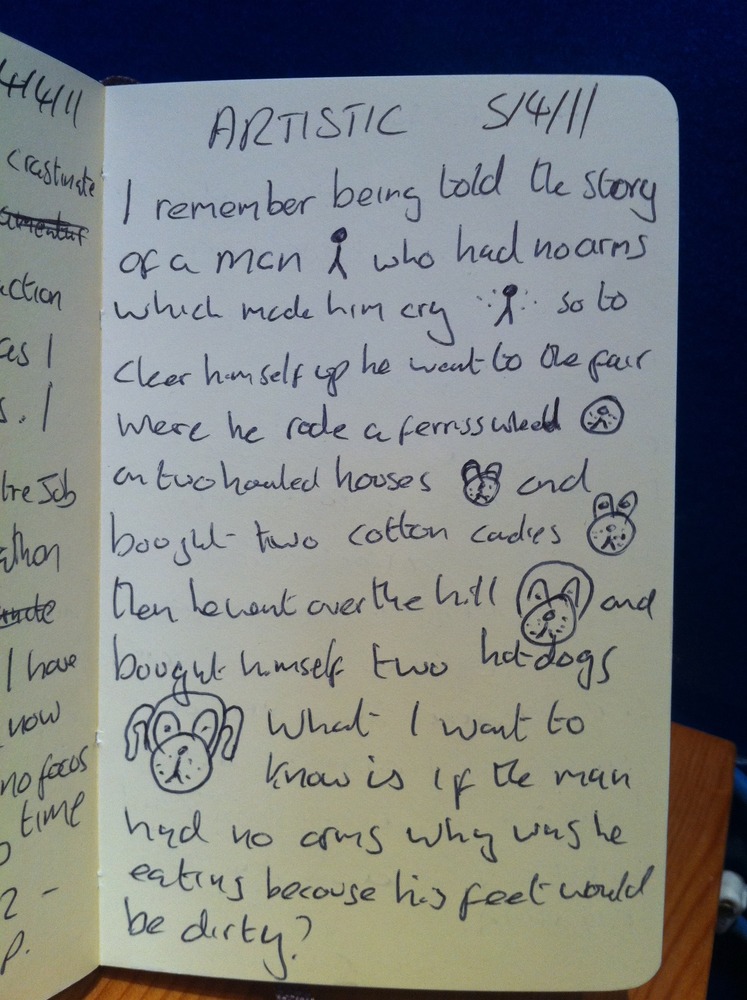 4/4/11
crastinate
action
I
. I
Job
athon
I have
now
no focus
time
ARTISTIC 5/4/11
I remember being told the story
of a man who had no arms
which made him cry so to
cleer himself up he went to the fair
where he rode a ferriss wheel
on two haunted houses and
bought two cotton cadies
then he went over the hill and
bought himself two hotdogs
What I want to
know is if the man
had no arms why was he
eating because his feet would
be dirty?